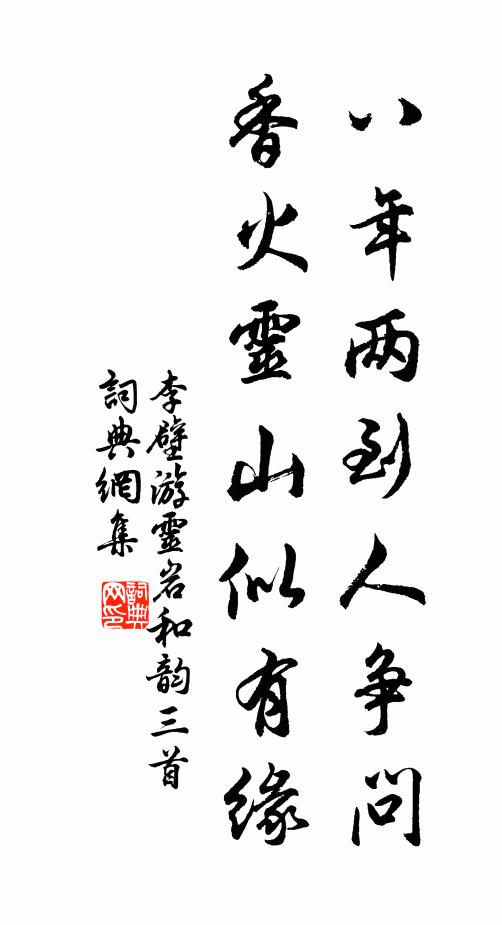 八年两到人争问
香火靈山似有緣
李壁游靈岩和韵三首
詞典網集
詞典
网印